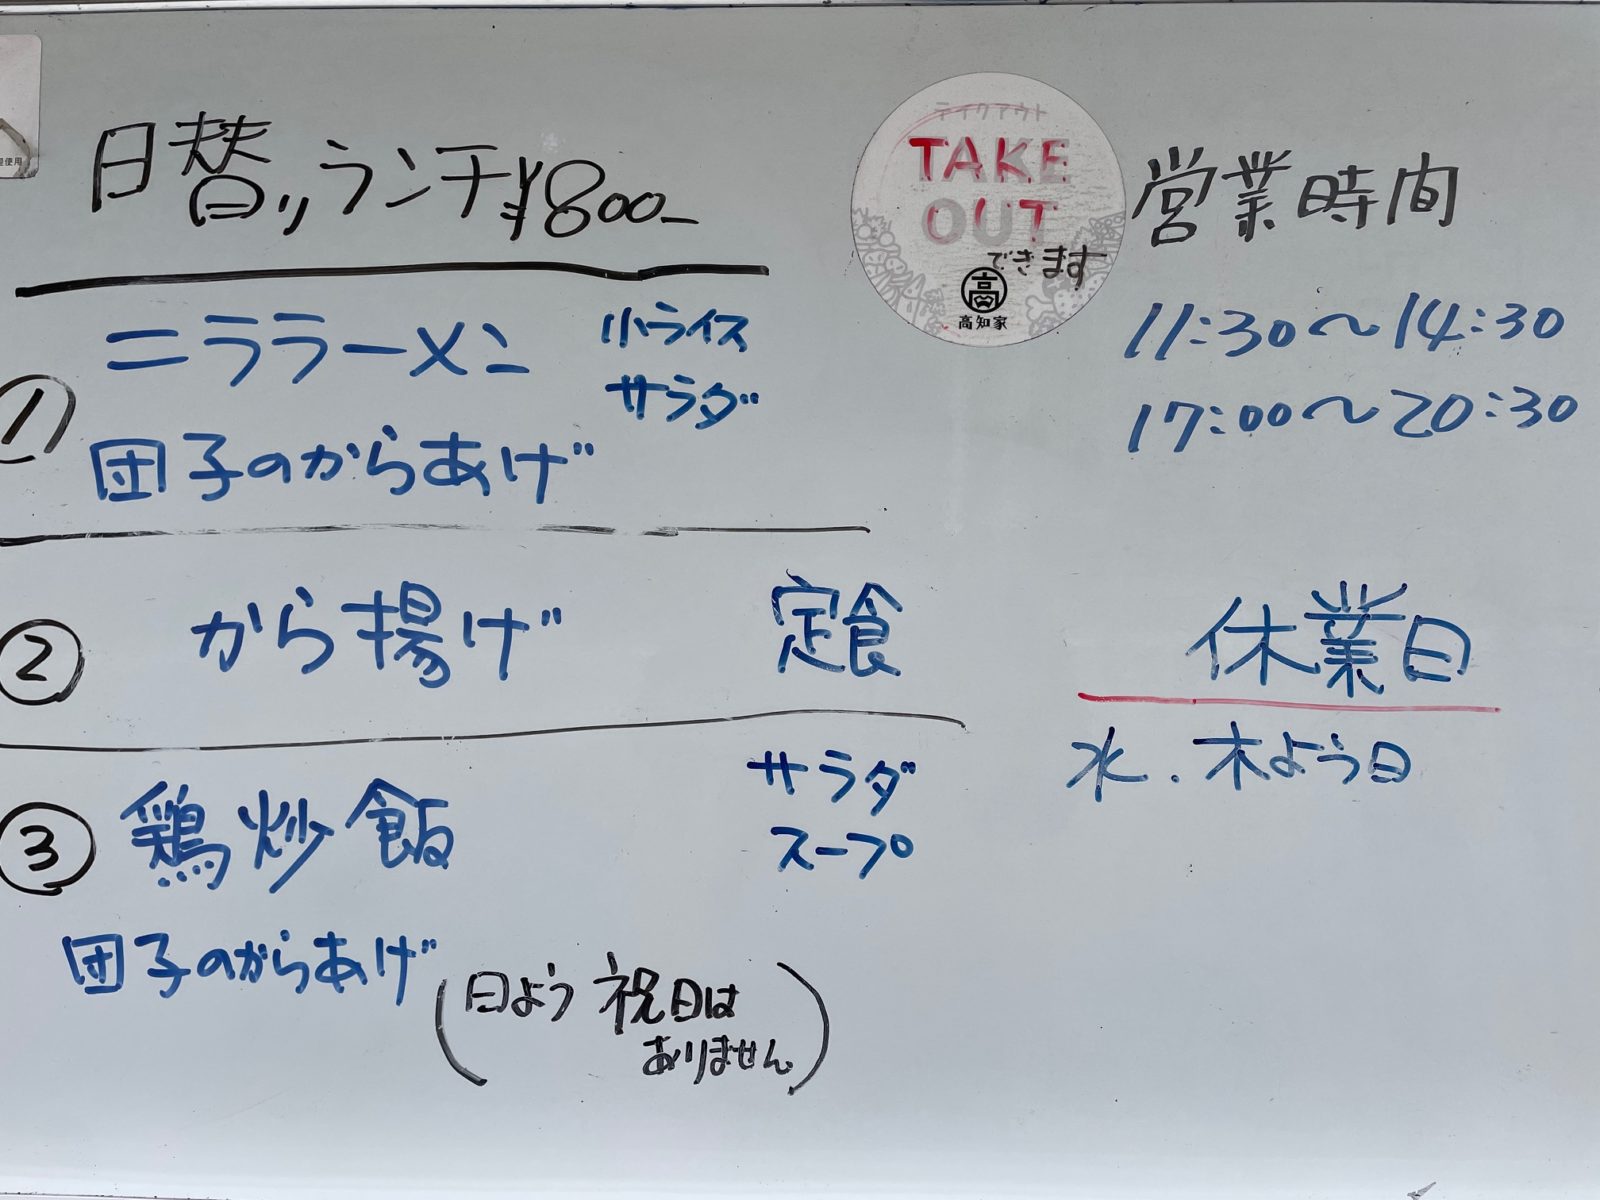 日替りランチ¥800-
ニララーメン 小ライス
サラダ
①
団子のからあげ
② から揚げ 定食
サラダ
③ 鶏炒飯 スープ
団子のからあげ
(日よう 祝日は
ありません)
テイクアウト
TAKE
OUT
できます
高
高知家
営業時間
11:30〜14:30
17:00〜20:30
休業日
水.木よう日
使用